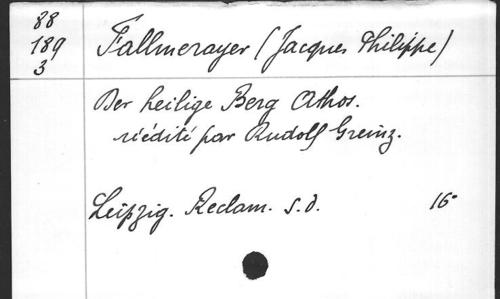 88
189 Fallmerayer (Jacques Philippe)
3
Der heilige Berg Athos.
réédité par Rudolf Greinz.
Leipzig. Reclam. s.d. 16°